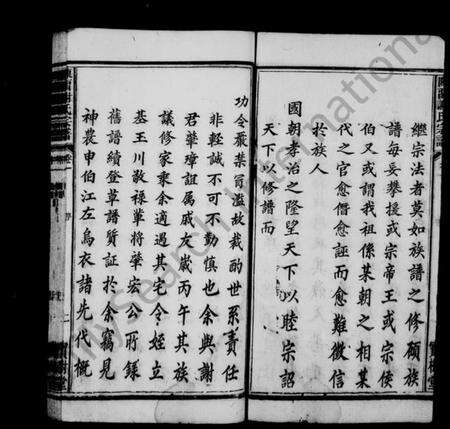 繼宗法者莫如族譜之修顧族
譜每妄攀援或宗帝王或宗侯
伯又或謂我祖係某朝之相某
代之官愈僭愈誣而愈難徵信
於族人
國朝孝治之隆望天下以睦宗詔
天下以修譜而
功令嚴禁冒濫故裁酌世系責任
非輕誠不可不勤慎也余與謝
君華璋誼屬戚友歲丙午其族
議修家乘余適過其宅令姪立
基王川敬祿華將華宏公所錄
舊譜續登草譜質証於余竊見
神農申伯江左烏衣諸先代概
MySearch International